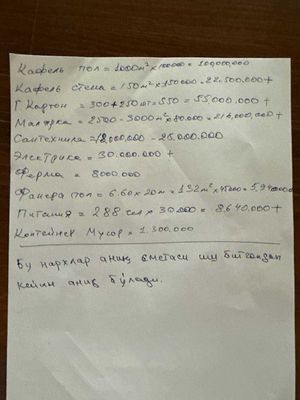 Кафель пол = 1000м² x 100000 = 100,000,000
Кафель стена = 150м² x 150000 = 22.500.000 +
Г Картон = 300+250 шт = 550 = 55000.000 +
Малярка = 2500 - 3000м² x 80.000 = 216,000,000 +
Сантехника = 18,000,000 - 25.000.000
Электрика = 30.000.000 +
Ферма = 8000000
Фанера пол = 6.60 x 20м = 132м² x 45000 = 5,940000
Питания = 288 x 30.000 = 8.640.000 +
Контейнер Мусор = 1.300.000
Бу нархлар аниқ сметаси иш битгандан
кейин аниқ бўлади.